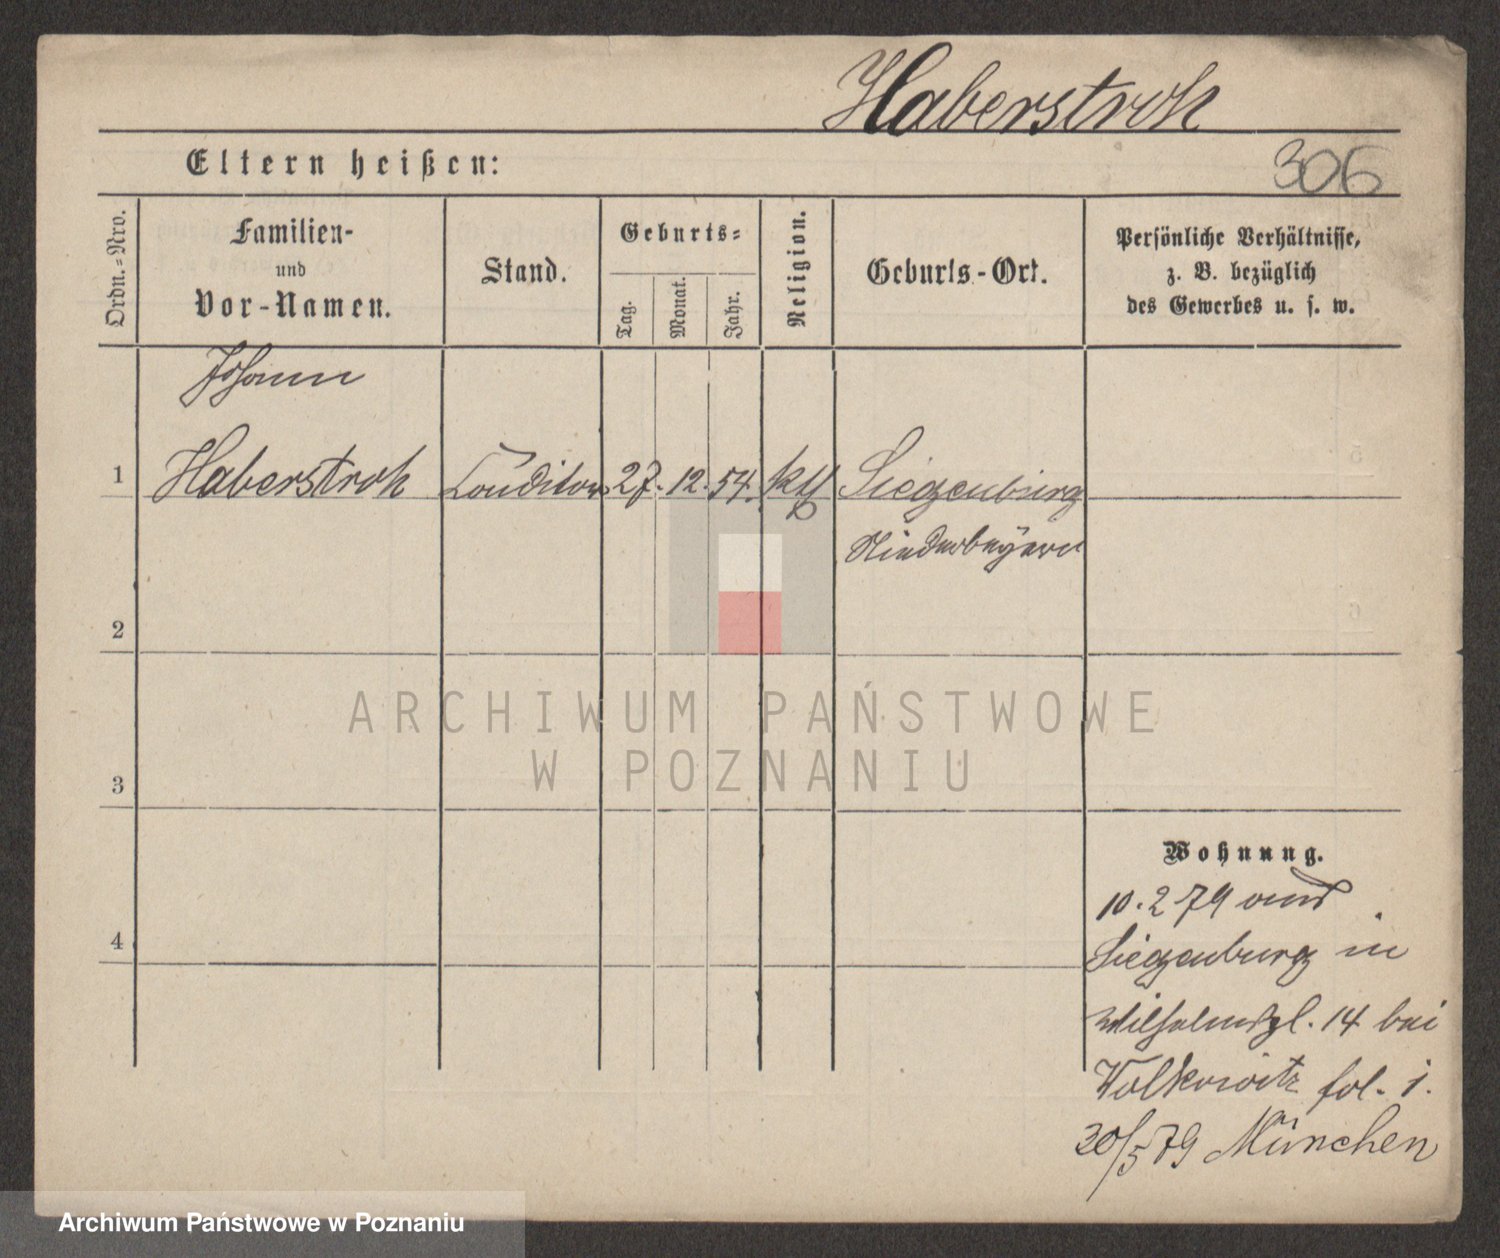 Haberstroh
Eltern heißen:
306
Ordn.=Nro.
Familien-
und
Vor-Namen.
Stand.
Geburts=
Tag.
Monat.
Jahr.
Religion.
Geburts-Ort.
Persönliche Verhältnisse,
z. B. bezüglich
des Gewerbes u. s. w.
Johann
1 Haberstroh Conditor 27. 12. 54. kth Siegenburg
Niederbayern
2
3
4
ARCHIWUM PAŃSTWOWE
W POZNANIU
Wohnung.
10. 2 79 aus
Siegenburg in
Wilhelmspl. 14 bei
Wolkowitz fol. 1.
30/5 79 München
Archiwum Państwowe w Poznaniu